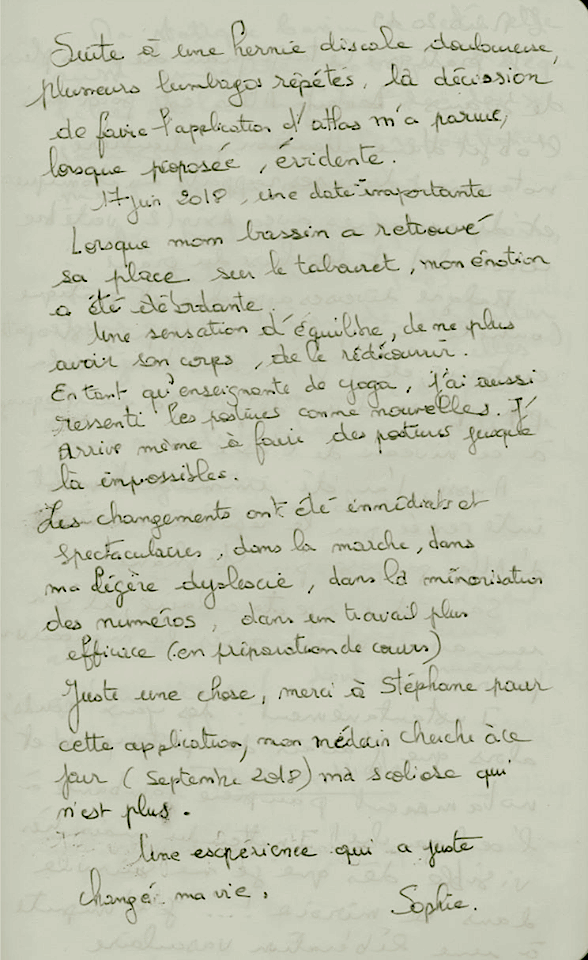 Suite à une hernie discale douloureuse,
plusieurs lumbagos répétés, la décision
de faire l'application d'atlas m'a parue,
lorsque proposée, évidente.
17 juin 2018, une date importante
Lorsque mon bassin a retrouvé
sa place sur le tabouret, mon émotion
a été débordante.
Une sensation d'équilibre, de ne plus
avoir son corps, de le rédécouvrir.
En tant qu'enseignante de yoga, j'ai aussi
ressenti les postures comme nouvelles. J'
Arrive même à faire des postures jusque
là impossibles.
Les changements ont été immédiats et
spectaculaires, dans la marche, dans
ma légère dyslexie, dans la mémorisation
des numéros, dans un travail plus
efficace (en préparation de cours)
Juste une chose, merci à Stéphane pour
cette application, mon médecin cherche à ce
jour (Septembre 2018) ma scoliose qui
n'est plus.
Une expérience qui a juste
changé ma vie.
Sophie.